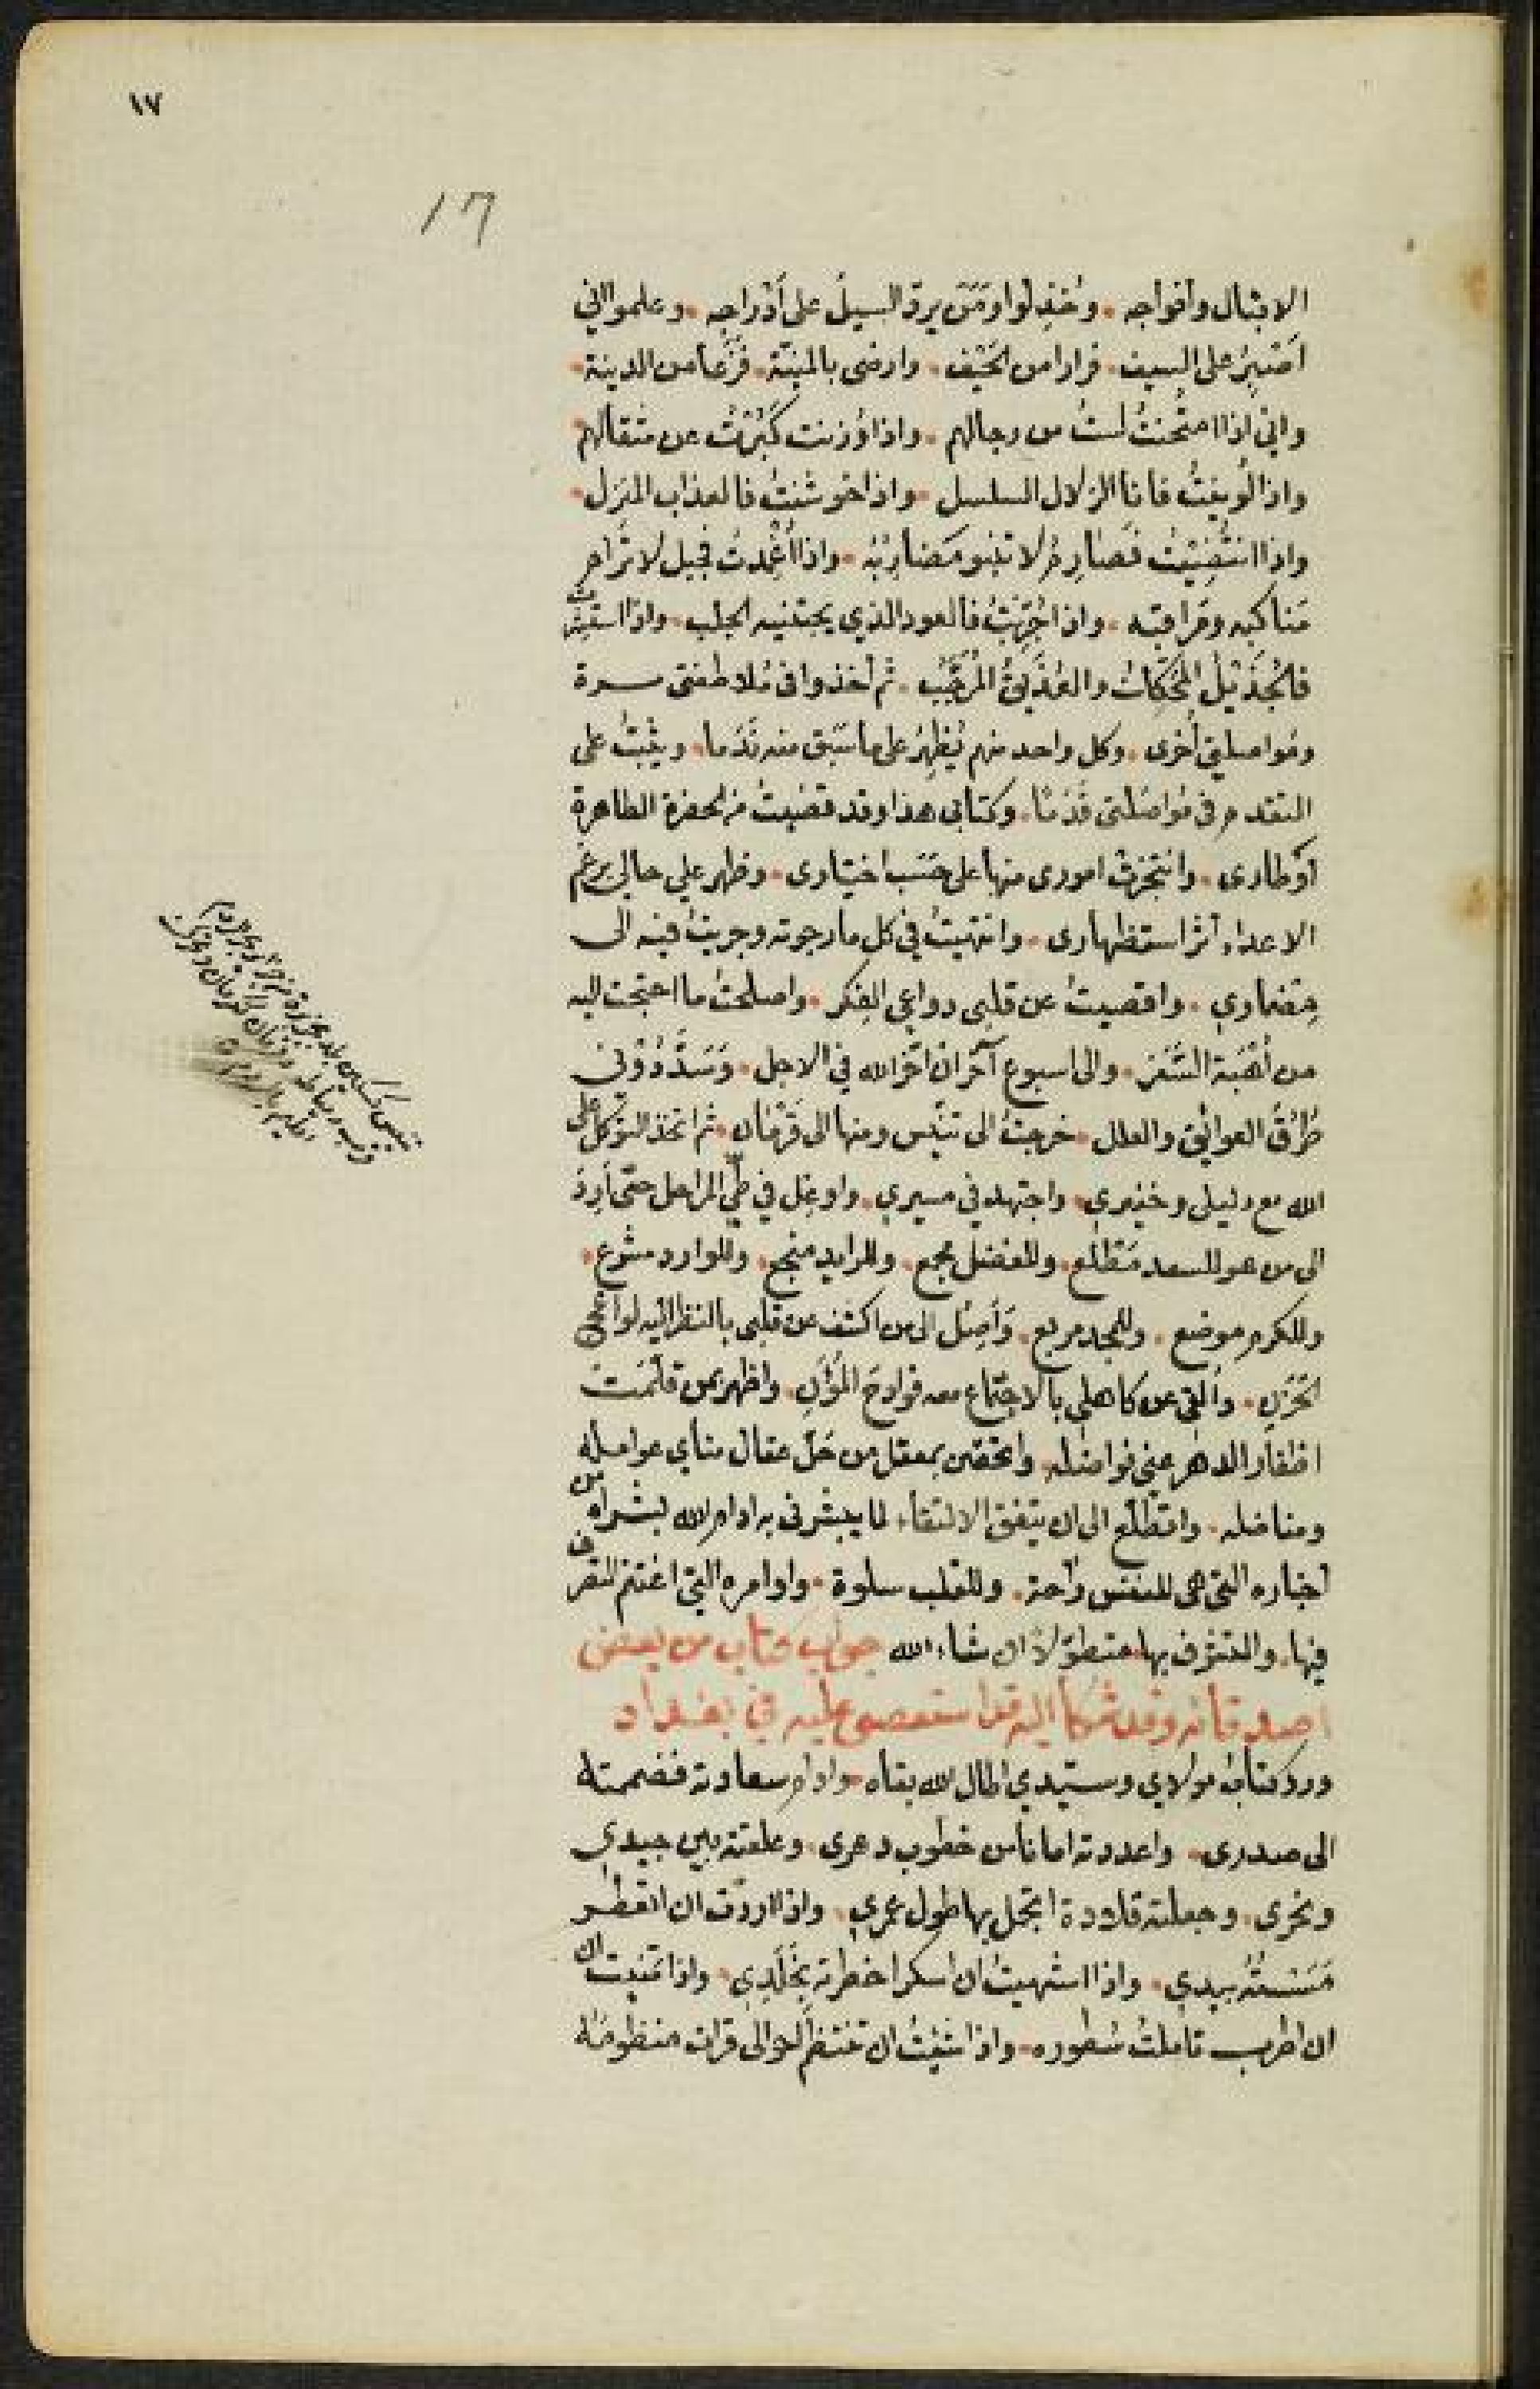 ١٧
17
الاقبال وافواجه . وخُذِلوا ومَن يردّ السيلَ على أدْراجِه . وعلموا اني
أصْبِرُ على السيف . فرارا من الحَيْف . وارضى بالمنيّة . فَزَعاً من الدنيئة .
واني اذا امتُحنتُ لستُ من رجالهم . واذا وُزنت كَبُرْتُ عن مثقالهم
واذا لُوينتُ فانا الزلال السلسل . واذا خوشنتُ فالعذاب المنزل .
واذا انتُضِيْتُ فصَارِمٌ لا تنبو مَضاربُه . واذا أُغْمِدتُ فجبل لا تُرام
مَناكبه ومَراقبه . واذا جُرِّبْتُ فالعود الذي يجتنيه الجلب . واذا استُنِبْتُ
فالجُذَيْلُ المُحَكَّكُ والعُذَيقُ المُرَجَّبُ . ثم أخذوا في مُلاطفتي مرة
ومُواصلتي أخرى . وكل واحد منهم يُظهِرُ على ما سَبَق منه نَدَما . ويثبتُ على
التقدم في مُواصَلتي قَدَمًا . وكتابي هذا وقد قضيتُ من الحضرة الطاهرة
أوطارى . وانتجزتُ امورى منها على حَسَب اختيارى . وظهر علي حالي برغم
الاعداء أثر استظهارى . وانتهيتُ في كل ما رجوته وجريتُ فيه الى
مِضماري . واقصيتُ عن قلبى دواعي الفِكر . واصلحتُ ما احتجت اليه
من أُهْبَة السَّفَر . والى اسبوع آخَر ان أخّر الله في الاجل . وسَدَّ دُوني
طُرُقَ العوائق والعلل . خرجتُ الى تنّيس ومنها الى فَرْمَان . ثم اتخذ التوكل على
الله مع دليلى وخفيري . واجتهد في مسيري . واوغِل في طَيّ المراحل حتّى أرِدَ
الى من هو للسعد مَطْلع . وللفضل مجمع . وللرايد منجع . وللوارد مشرع .
وللكرم موضع . وللمجد مربع . وأصِل الى من اكشف عن قلبى بالنظر اليه لواعج
الحَزَن . وأُلقي عن كاهلي بالاجتماع معه فوادحَ المُؤَن . واظهر بمن قلّمَت
اظفار الدهر عني فواضله . واتحصّن بمعقل من حَلّ عقال عوامله
ومناضله . واتطلّع الى ان يتفق الالتقاء لما يبشرني به ادام الله بشراه من
اخباره التي هى للنفس راحة . وللقلب سلوة . واوامره التي اغتنم التصرف
فيها . والتشرف بها متطوّلاً ان شاء الله جواب كتاب من بعض
اصدقائه وقد شكا اليه قدا ستعصى عليه في بغداد
ورد كتاب مولاي وسيّدي اطال الله بقاه وادام سعادته فضممته
الى صدرى . واعددته امانا من خطوب دهرى . وعلقته بين جيدي
ونحرى . وجعلته قلادة اتجمل بها طول عمري . واذا اردت ان اتعطر
مَسَسْتُه بيدي . واذا اشتهيتُ ان اسكر اخطرته بخَلَدِي . واذا تمنيت ان
ان اطرب تاملتُ سُطوره . واذا شئتُ ان تنتظم احوالى قرات منظومه